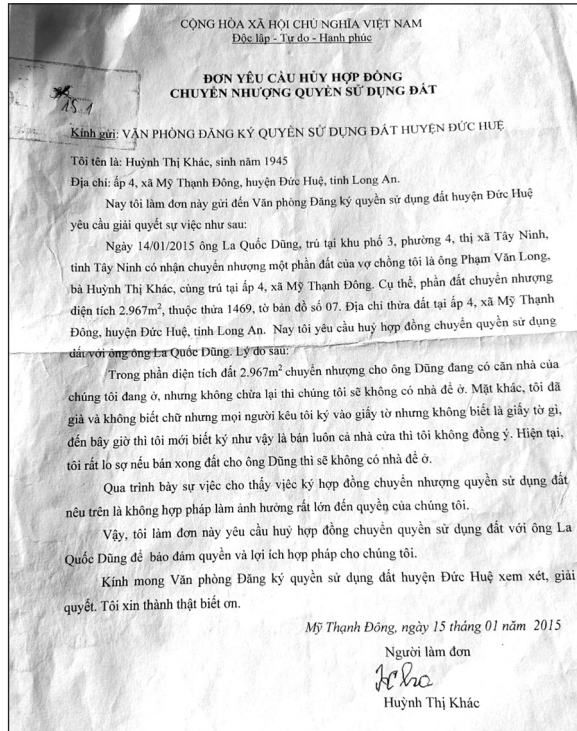 CỘNG HÒA XÃ HỘI CHỦ NGHĨA VIỆT NAM
Độc lập - Tự do - Hạnh phúc
15.1
ĐƠN YÊU CẦU HỦY HỢP ĐỒNG
CHUYỂN NHƯỢNG QUYỀN SỬ DỤNG ĐẤT
Kính gửi: VĂN PHÒNG ĐĂNG KÝ QUYỀN SỬ DỤNG ĐẤT HUYỆN ĐỨC HUỆ
Tôi tên là: Huỳnh Thị Khác, sinh năm 1945
Địa chỉ: ấp 4, xã Mỹ Thạnh Đông, huyện Đức Huệ, tỉnh Long An.
Nay tôi làm đơn này gửi đến Văn phòng Đăng ký quyền sử dụng đất huyện Đức Huệ
yêu cầu giải quyết sự việc như sau:
Ngày 14/01/2015 ông La Quốc Dũng, trú tại khu phố 3, phường 4, thị xã Tây Ninh,
tỉnh Tây Ninh có nhận chuyển nhượng một phần đất của vợ chồng tôi là ông Phạm Văn Long,
bà Huỳnh Thị Khác, cùng trú tại ấp 4, xã Mỹ Thạnh Đông. Cụ thể, phần đất chuyển nhượng
diện tích 2.967m², thuộc thửa 1469, tờ bản đồ số 07. Địa chỉ thửa đất tại ấp 4, xã Mỹ Thạnh
Đông, huyện Đức Huệ, tỉnh Long An. Nay tôi yêu cầu huỷ hợp đồng chuyển quyền sử dụng
đất với ông ông La Quốc Dũng. Lý do sau:
Trong phần diện tích đất 2.967m² chuyển nhượng cho ông Dũng đang có căn nhà của
chúng tôi đang ở, nhưng không chừa lại thì chúng tôi sẽ không có nhà để ở. Mặt khác, tôi đã
già và không biết chữ nhưng mọi người kêu tôi ký vào giấy tờ nhưng không biết là giấy tờ gì,
đến bây giờ thì tôi mới biết ký như vậy là bán luôn cả nhà cửa thì tôi không đồng ý. Hiện tại,
tôi rất lo sợ nếu bán xong đất cho ông Dũng thì sẽ không có nhà để ở.
Qua trình bày sự việc cho thấy việc ký hợp đồng chuyển nhượng quyền sử dụng đất
nêu trên là không hợp pháp làm ảnh hưởng rất lớn đến quyền của chúng tôi.
Vậy, tôi làm đơn này yêu cầu huỷ hợp đồng chuyển quyền sử dụng đất với ông La
Quốc Dũng để bảo đảm quyền và lợi ích hợp pháp cho chúng tôi.
Kính mong Văn phòng Đăng ký quyền sử dụng đất huyện Đức Huệ xem xét, giải
quyết. Tôi xin thành thật biết ơn.
Mỹ Thạnh Đông, ngày 15 tháng 01 năm 2015
Người làm đơn
Huỳnh Thị Khác